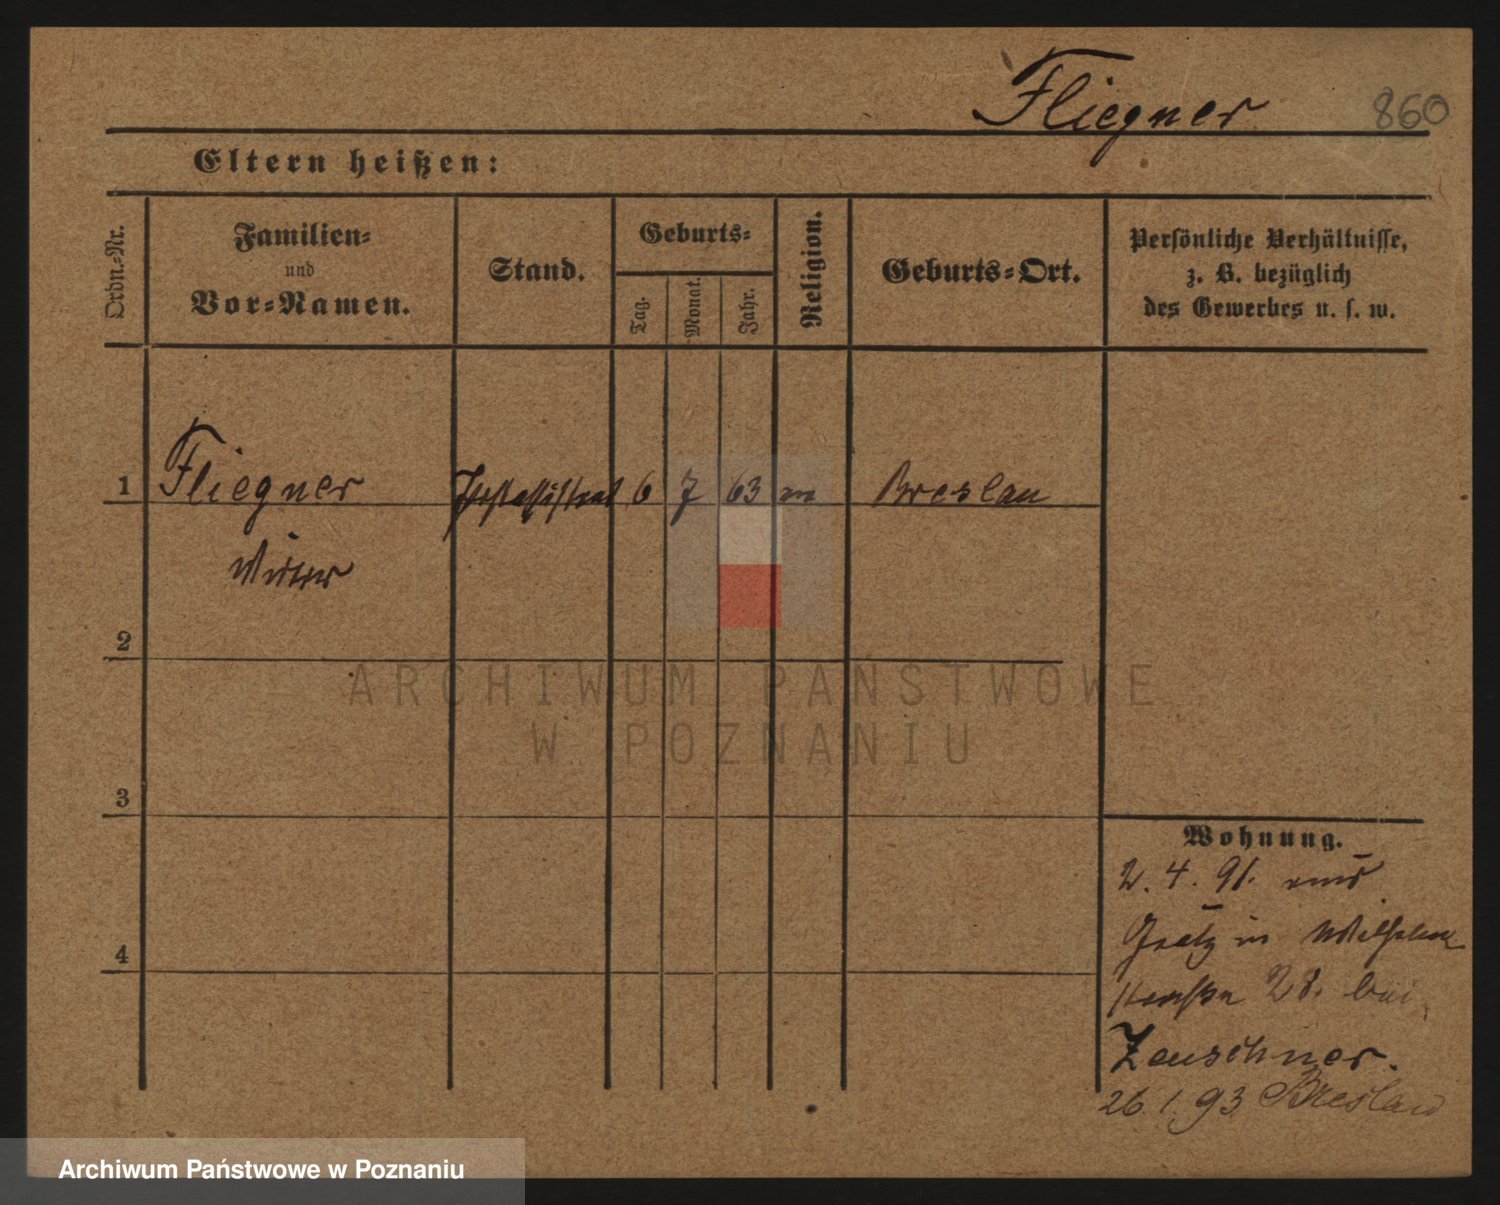 Fliegner 860
Eltern heißen:
Ordn.-Nr.
Familien-
und
Vor-Namen.
Stand.
Geburts-
Tag.
Monat.
Jahr.
Religion.
Geburts-Ort.
Persönliche Verhältnisse,
z. B. bezüglich
des Gewerbes u. s. w.
1 Fliegner 6 7 63 Breslau
2
3
4
Wohnung.
2. 4. 91. aus
Grätz in Wilhelm
straße 28. bei
Zeuschner.
26. 1. 93 Breslau
ARCHIWUM PAŃSTWOWE
W POZNANIU
Archiwum Państwowe w Poznaniu